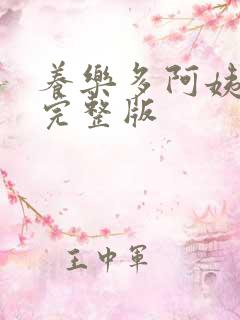 養樂多阿姨
完整版
王中軍